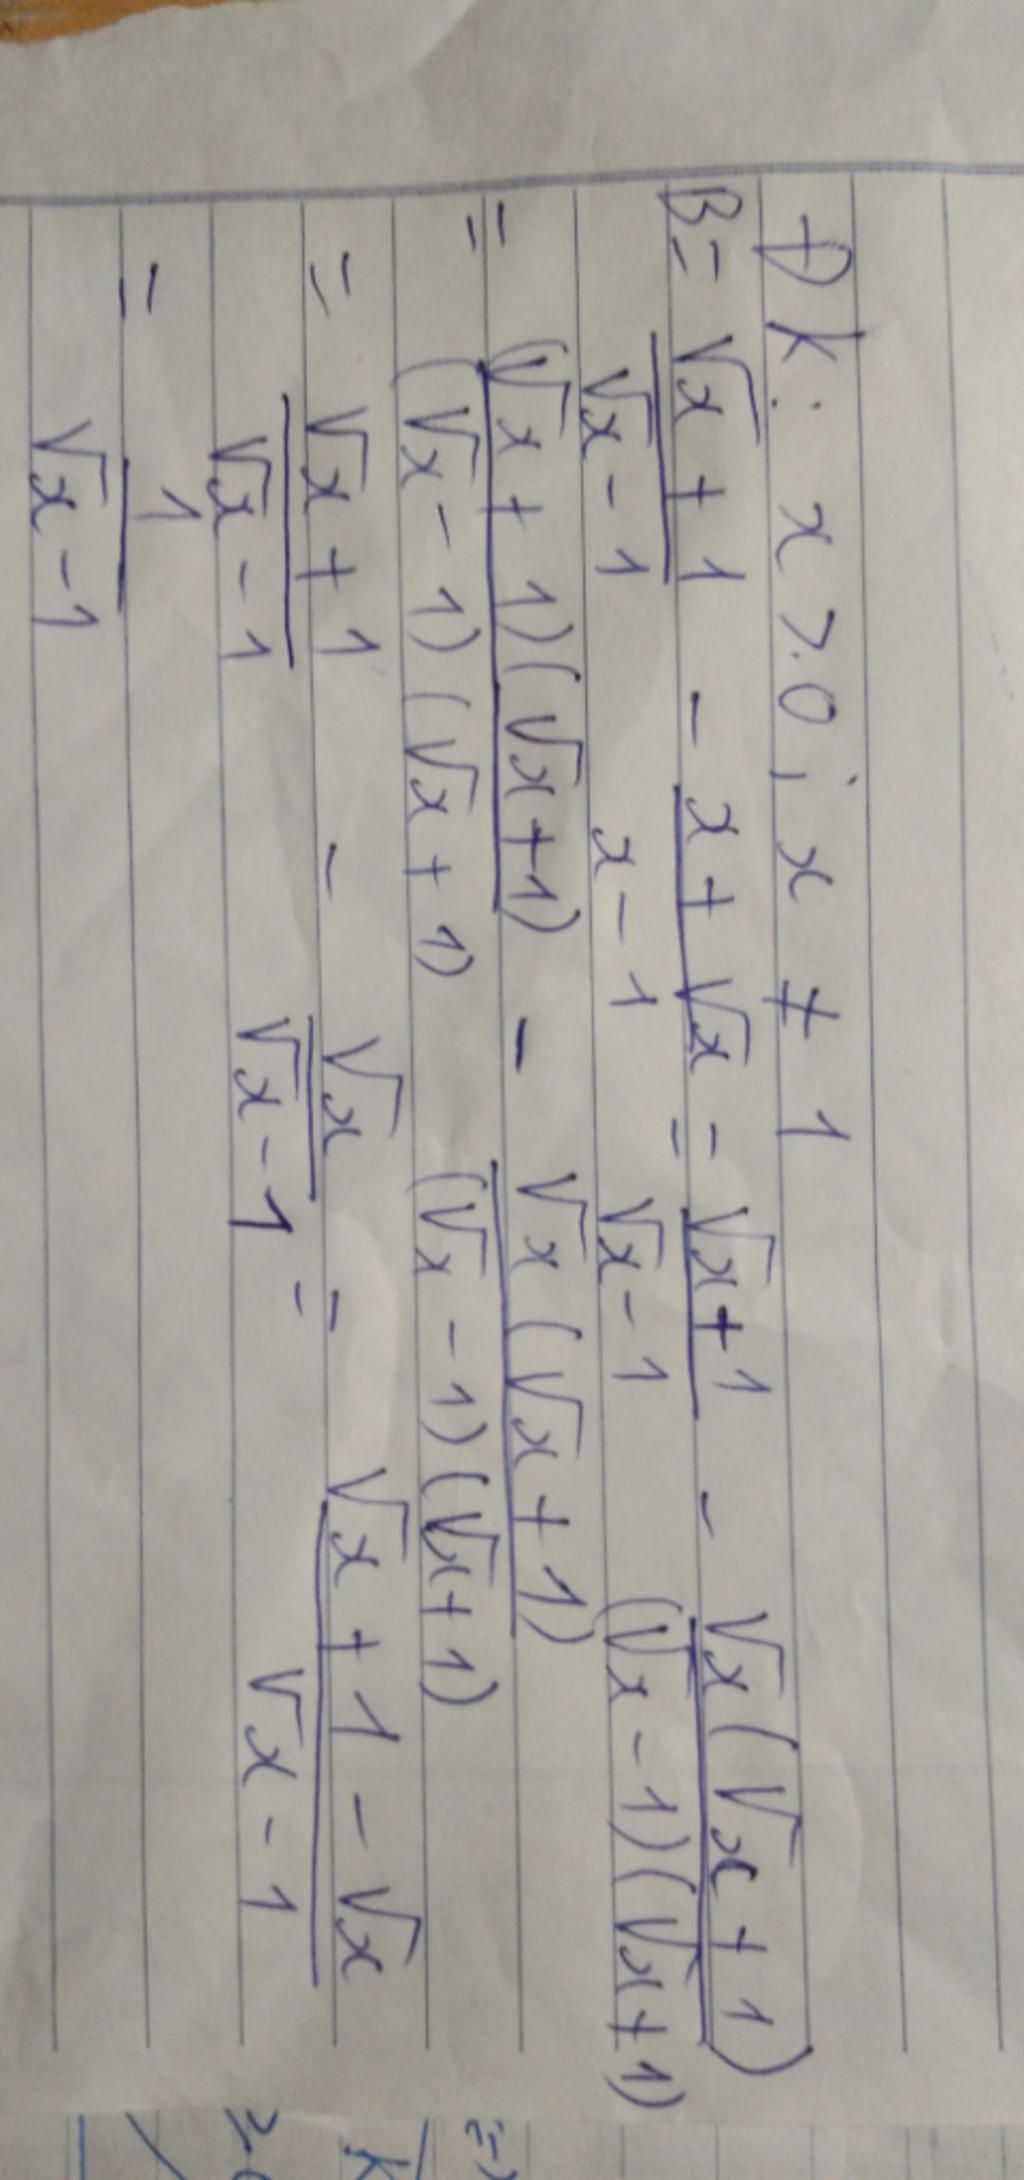 ĐK: x ⩾ 0; x ≠ 1
B = (√x + 1)/(√x - 1) - (x + √x)/(x - 1) = (√x + 1)/(√x - 1) - √x(√x + 1)/((√x - 1)(√x + 1))
= (√x + 1)(√x + 1)/((√x - 1)(√x + 1)) - √x(√x + 1)/((√x - 1)(√x + 1))
= (√x + 1)/(√x - 1) - √x/(√x - 1) = (√x + 1 - √x)/(√x - 1)
= 1/(√x - 1)